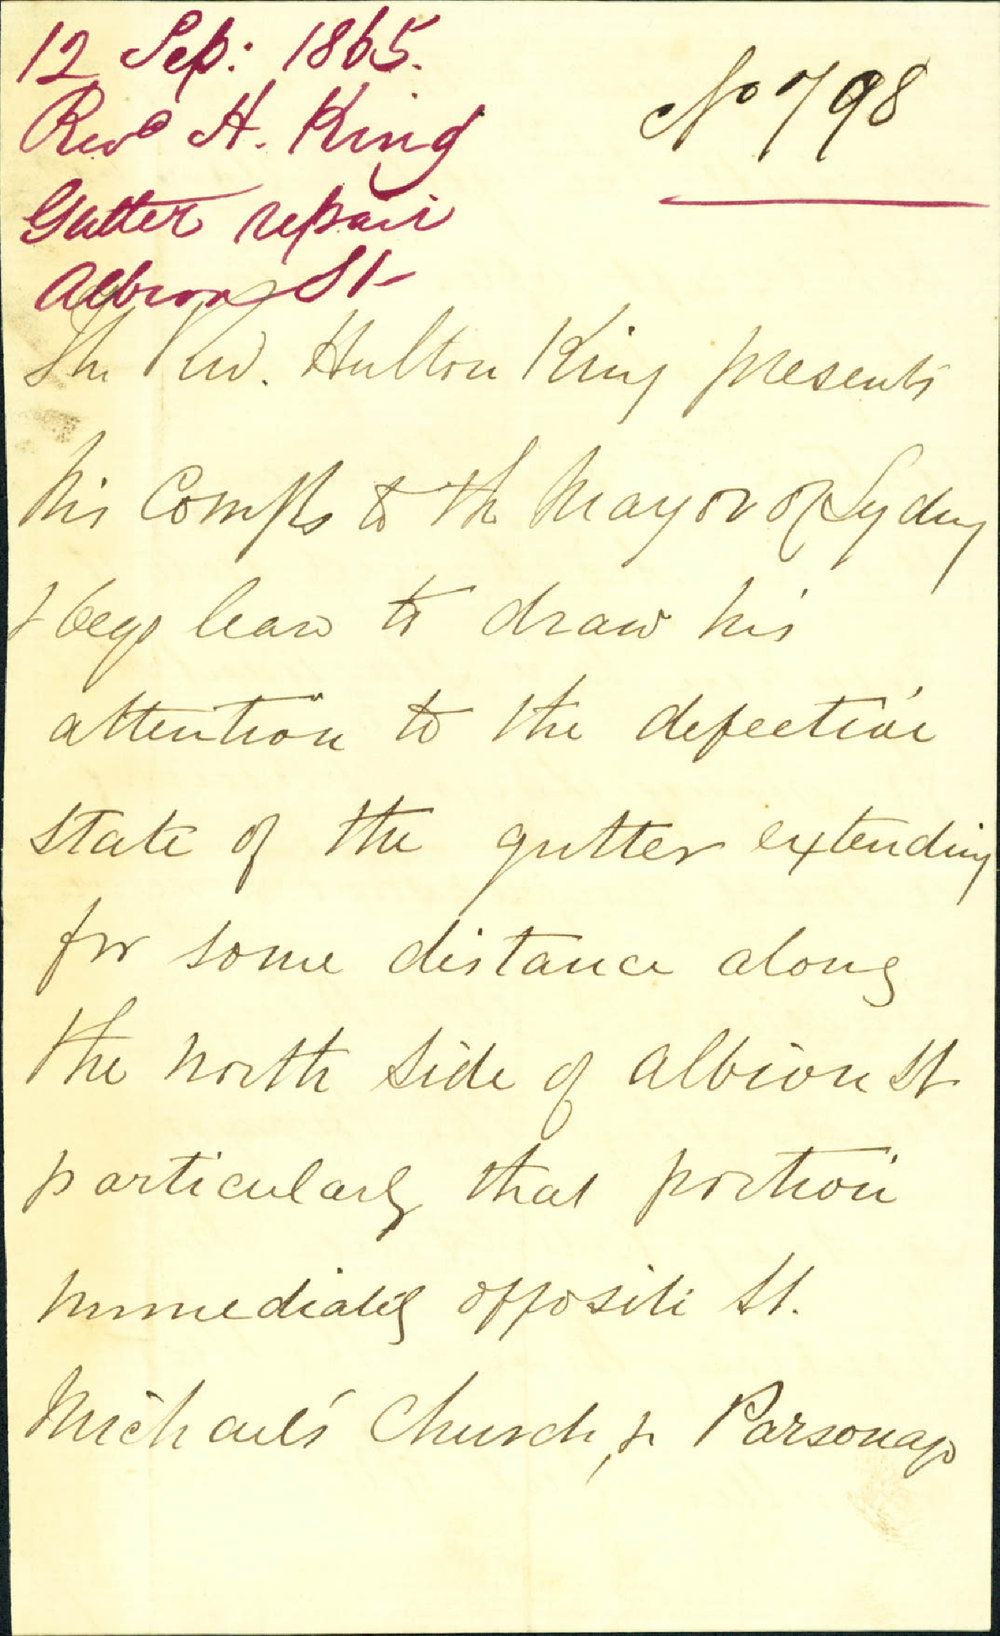 12 Sep: 1865.
Revd H. King
Gutter repair
Albion St
No 798
The Rev. Hulton King presents
his Compts to the Mayor of Sydney
& begs leave to draw his
attention to the defective
state of the gutter extending
for some distance along
the north side of Albion St
particularly that portion
immediately opposite St.
Michael's Church, & Parsonage